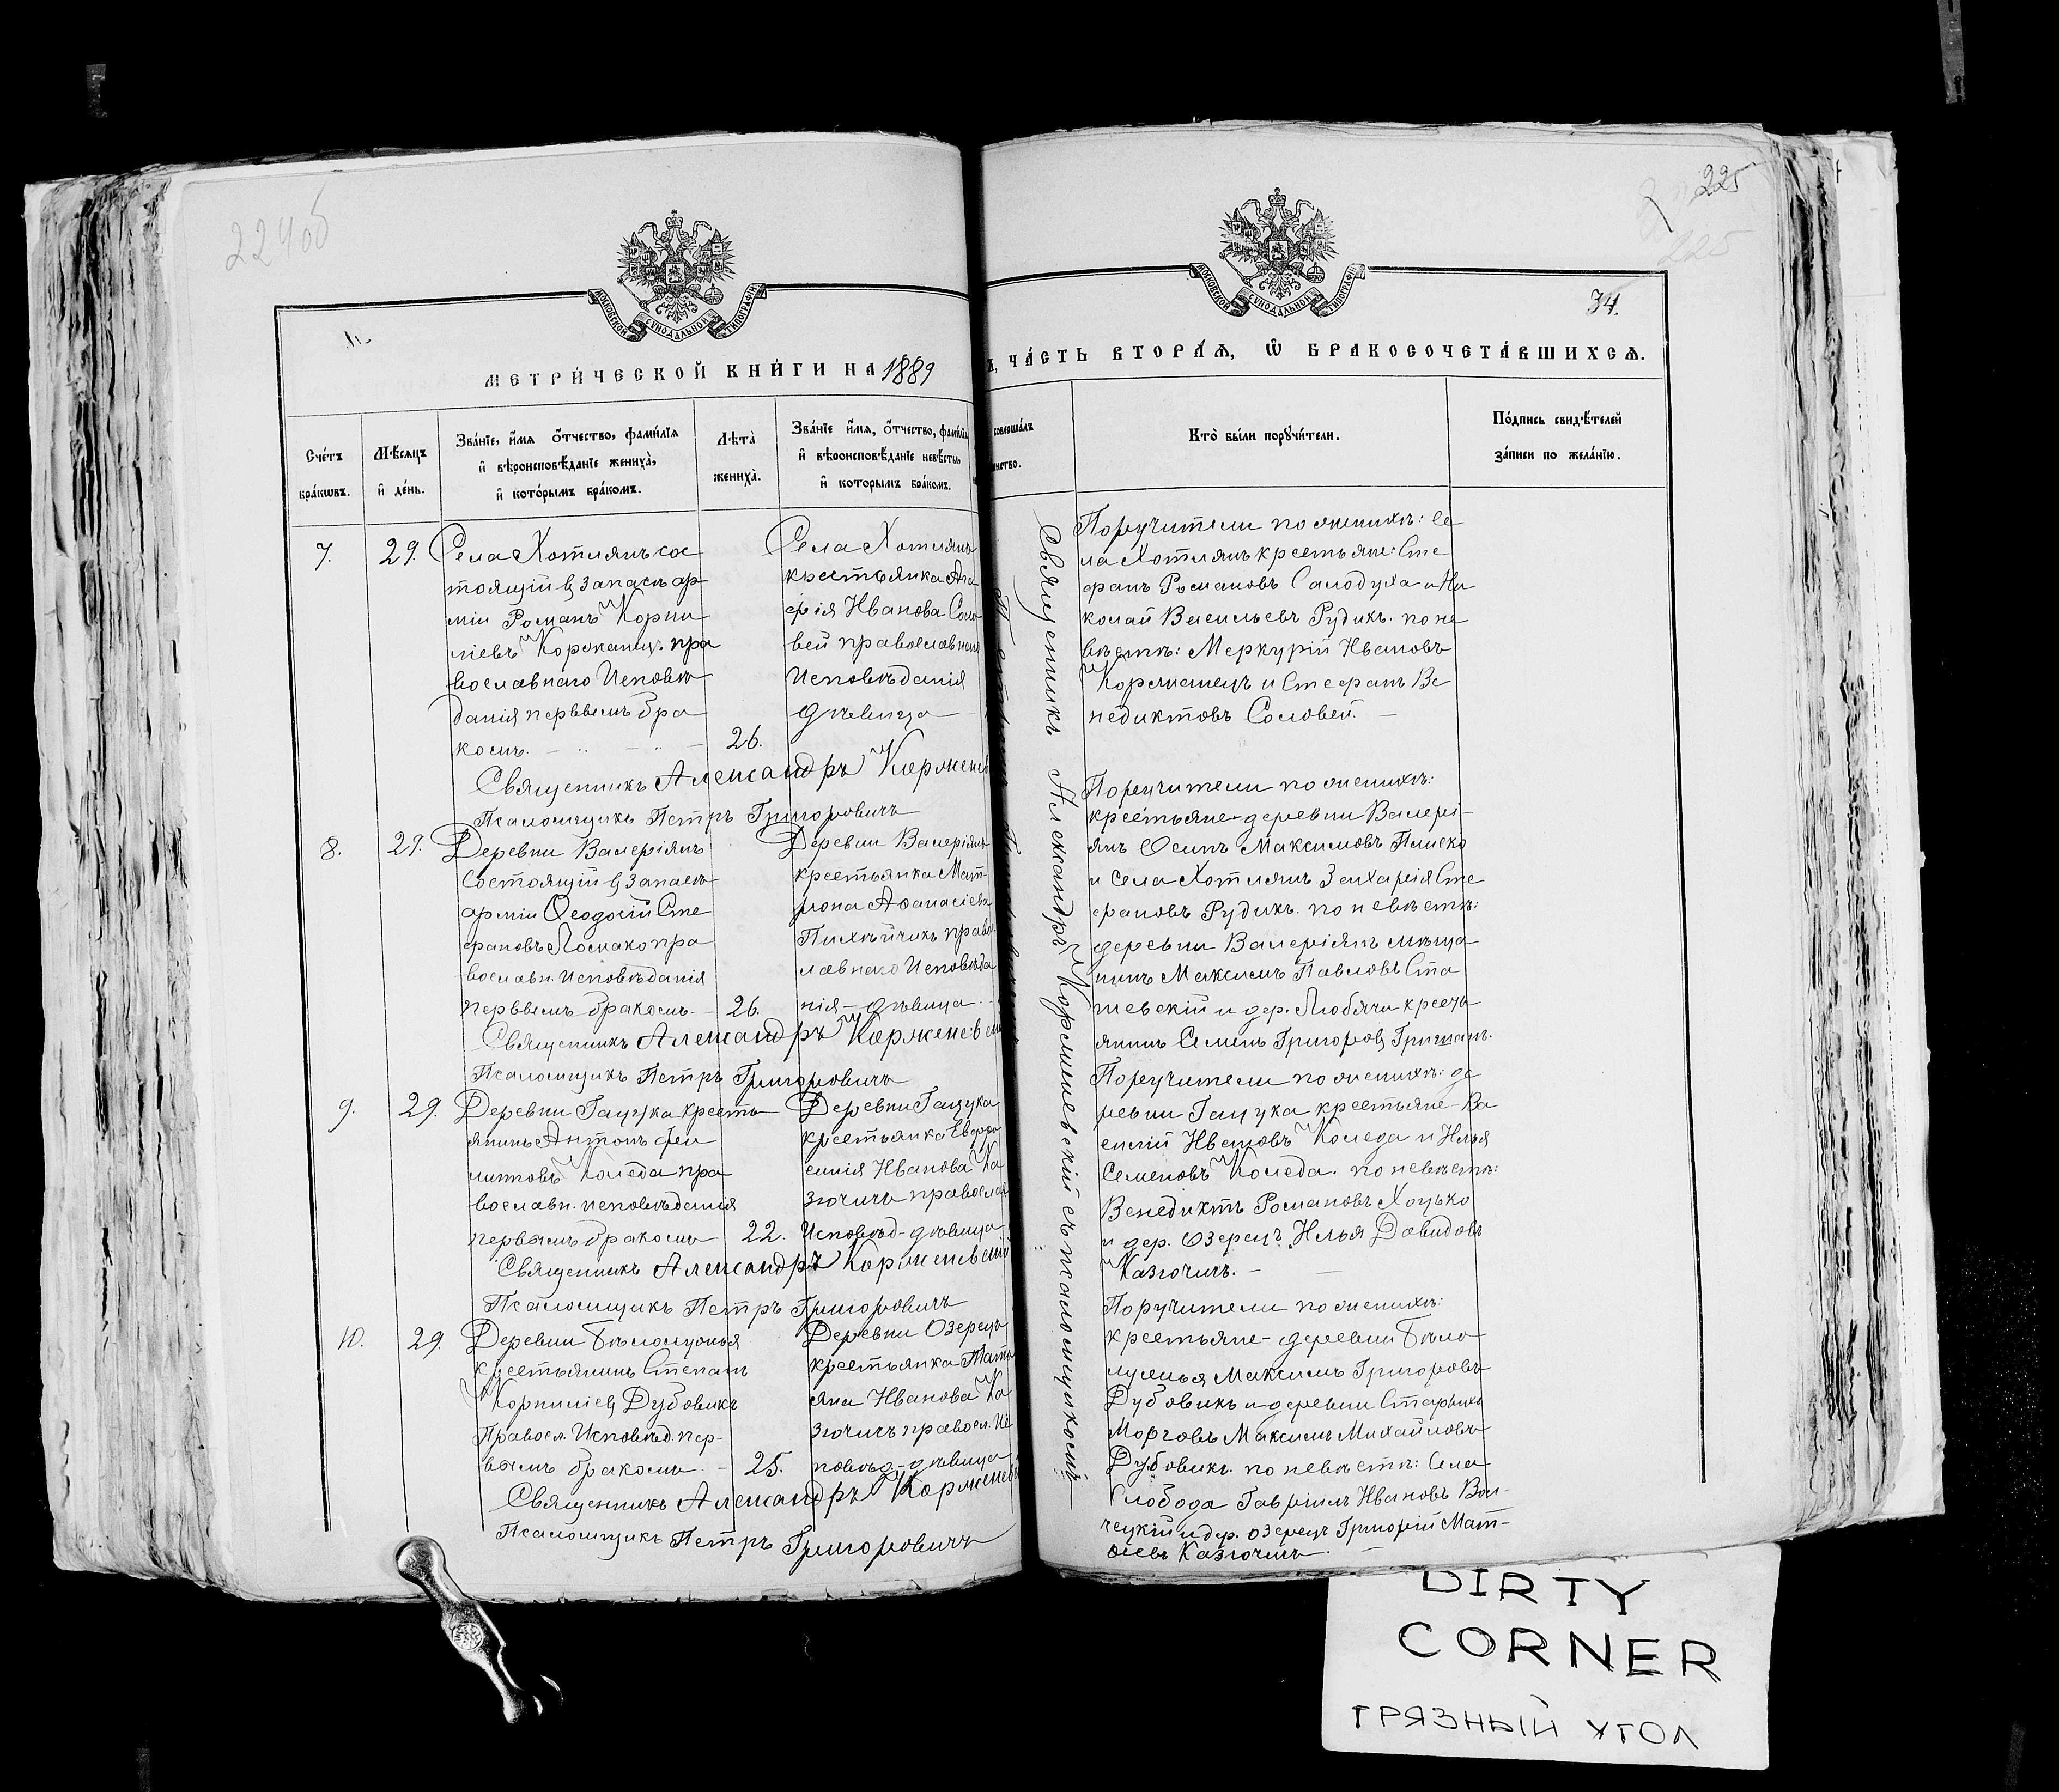 224об
225
225
34.
МОСКОВСКОЙ СѴНОДАЛЬНОЙ ТИПОГРАФІИ
МОСКОВСКОЙ СѴНОДАЛЬНОЙ ТИПОГРАФІИ
МЕТРИ́ЧЕСКОЙ КНИ́ГИ НА 1889
ЧА́СТЬ ВТОРА́Ѧ, Ѿ БРАКОСОЧЕТА́ВШИХСѦ.
Сче́тъ бра́кѡвъ.
Мѣ́сѧцъ и҆ де́нь.
Зва́нїе, и҆́мѧ ѻ҆́тчество, фами́лїѧ
и҆ вѣроисповѣ́данїе жениха̀,
и҆ кото́рымъ бра́комъ.
Лѣта̀ жениха̀.
Зва́нїе и҆́мѧ, ѻ҆́тчество, фами́лїѧ
и҆ вѣроисповѣ́данїе невѣ́сты,
и҆ которымъ бра́комъ.
соверша́лъ
Кто̀ бы́ли порꙋчи́тели.
По́дпись свидѣ́телей
за́писи по жела́нїю.
7.
29.
Села Хотлянъ сос
тоящій въ запасѣ ар
міи Романъ Корни
ліевъ Коржанец. пра
вославнаго Исповѣ
данія первымъ бра
комъ.
26.
Села Хотлянъ
крестьянка Ага
фія Иванова Соло
вей православнаго
Исповѣданія
дѣвица
Священникъ Александръ Корженев
Псаломщикъ Петръ Григоровичъ
8.
29.
Деревни Валеріянъ
Состоящій въ запасѣ
арміи Ѳеодосій Сте
фановъ Ломако пра
вославн. Исповѣданія
первымъ бракомъ.
26.
Деревни Валеріянъ
крестьянка Мат-
рона Аѳанасіева
Пихтейчикъ право
лавнаго Исповѣда
нія - дѣвица
Священникъ Александръ Корженевскій
Псаломщикъ Петръ Григоровичъ
9.
29.
Деревни Гацука кресть
янинъ Антонъ Фи
липповъ Коледа пра
вославн. исповѣданія
первымъ бракомъ
22.
Деревни Гацука
крестьянка Евфро
синія Иванова Ка
зючичъ православ
Исповѣд - дѣвица
Священникъ Александръ Корженевскій
Псаломщикъ Петръ Григоровичъ
10.
29.
Деревни Бѣлолужья
крестьянинъ Степанъ
Корниліевъ Дубовикъ
Правосл. Исповѣд. пер-
вымъ бракомъ
25.
Деревни Озерецъ
крестьянка Тать
яна Иванова Ка
зючичъ правосл. Ис
повѣд - дѣвица
Священникъ Александръ Корженев
Псаломщикъ Петръ Григоровичъ
Священникъ Александръ Корженевскій съ псаломщикомъ
Поручители по женихѣ: Се
ла Хотлянъ крестьяне: Сте
фанъ Романовъ Самодуха и Ни
колай Васильевъ Рудикъ. по не
вѣстѣ: Меркурій Ивановъ
Коржанецъ и Стефанъ Ве
недиктовъ Соловей.
Поручители по женихѣ:
крестьяне - деревни Валері-
янъ Осипъ Максимовъ Плиско
и Села Хотлянъ Захарія Сте
фановъ Рудикъ. по невѣстѣ:
деревни Валеріянъ мѣща
нинъ Максимъ Павловъ Ста
шевскій и дер. Любячи кресть-
янинъ Семенъ Григоровъ Гришанъ.
Поручители по женихѣ: де
ревни Гацука крестьяне - Ва
силій Ивановъ Коледа и Илья
Семеновъ Коледа. по невѣстѣ:
Венедиктъ Романовъ Хоцько
и дер. Озерецъ Илья Давидовъ
Казючичъ.
Поручители по женихѣ:
крестьяне - деревни Бѣло
лужья Максимъ Григоровъ
Дубовикъ и деревни Старыхъ
Морговъ Максимъ Михайловъ
Дубовикъ. по невѣстѣ: Села
Слобода Гавріилъ Ивановъ Вол-
чецкій и дер. Озерецъ Григорій Мат-
ѳеевъ Казючичъ
DIRTY
CORNER
ГРЯЗНЫЙ УГОЛ